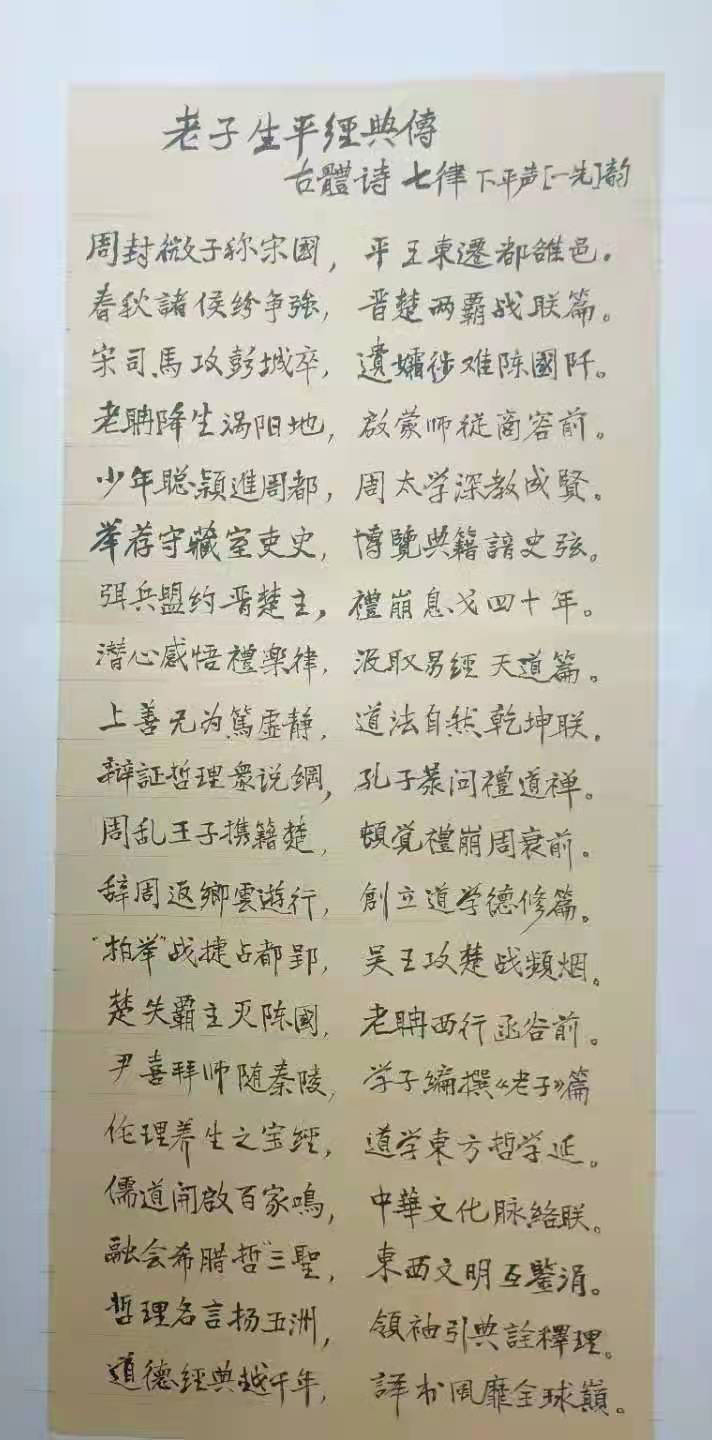 老子生平經典傳
古體诗 七律 下平声[一先]韵
周封微子称宋國，平王東遷都雒邑。
春秋諸侯纷争強，晋楚两霸战联篇。
宋司馬攻彭城卒，遺孀徙难陈國阡。
老聃降生涡阳地，啟蒙师從商容前。
少年聪颖進周都，周太学深教成賢。
举荐守藏室吏史，博覽典籍諳史弦。
弭兵盟约晋楚主，禮崩息戈四十年。
潜心感悟禮樂律，汲取易經天道篇。
上善无为篤虚静，道法自然乾坤联。
辩証哲理衆说綱，孔子恭问禮道禅。
周乱王子携籍楚，頓觉禮崩周衰前。
辞周返鄉雲遊行，創立道学德修篇。
“柏举”战捷占都郢，吴王攻楚战頻烟。
楚失霸主灭陈國，老聃西行函谷前。
尹喜拜师随秦陵，学子编撰《老子》篇
伦理养生之宝經，道学東方哲学延。
儒道開啟百家鳴，中華文化脉絡联。
融会希腊哲“三聖，東西文明互鑒涓。
哲理名言扬五洲，領袖引典詮釋理。
道德經典越千年，譯本風靡全球巔。